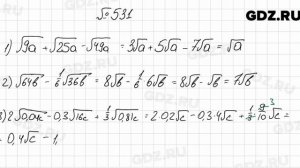 GDZ.RU
№531
1) √9a + √25a − √49a = 3√a + 5√a − 7√a = √a
2) √64b − 1/6 √36b = 8√b − 1/6 · 6√b = 8√b − √b = 7√b
3) 2√0,04c − 0,3√16c + 1/3 √0,81c = 2·0,2√c − 0,3·4√c + 1/3 · 9/10 √c =
= 0,4√c − 1,